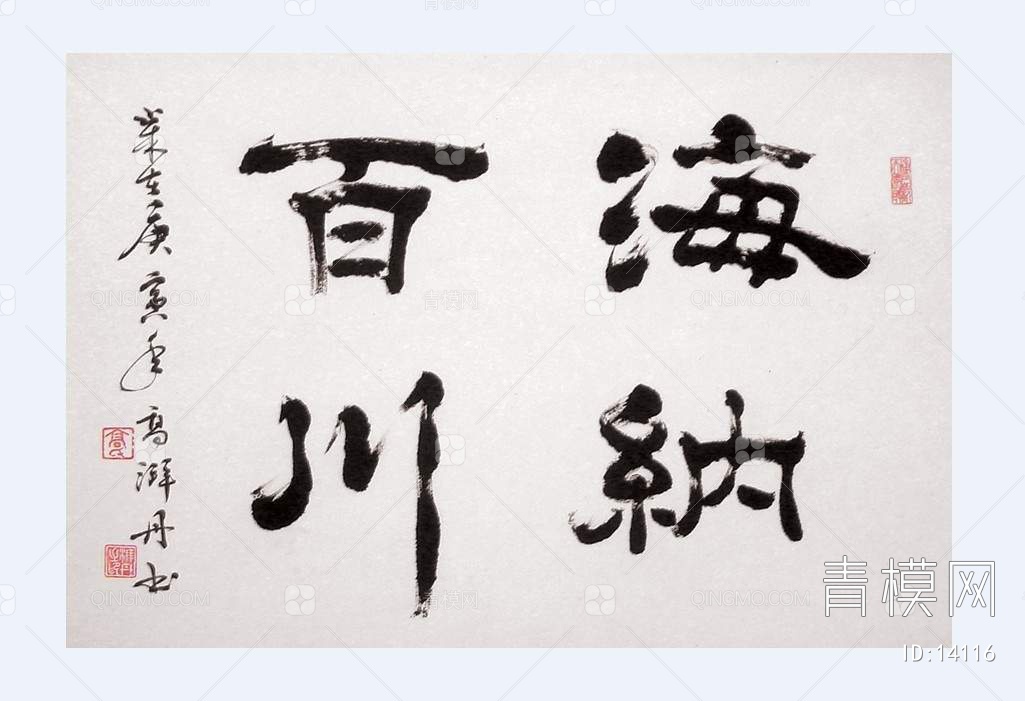 海納
百川
歲在庚寅年高湃丹书
青模网
ID:14116
QINGMO.COM